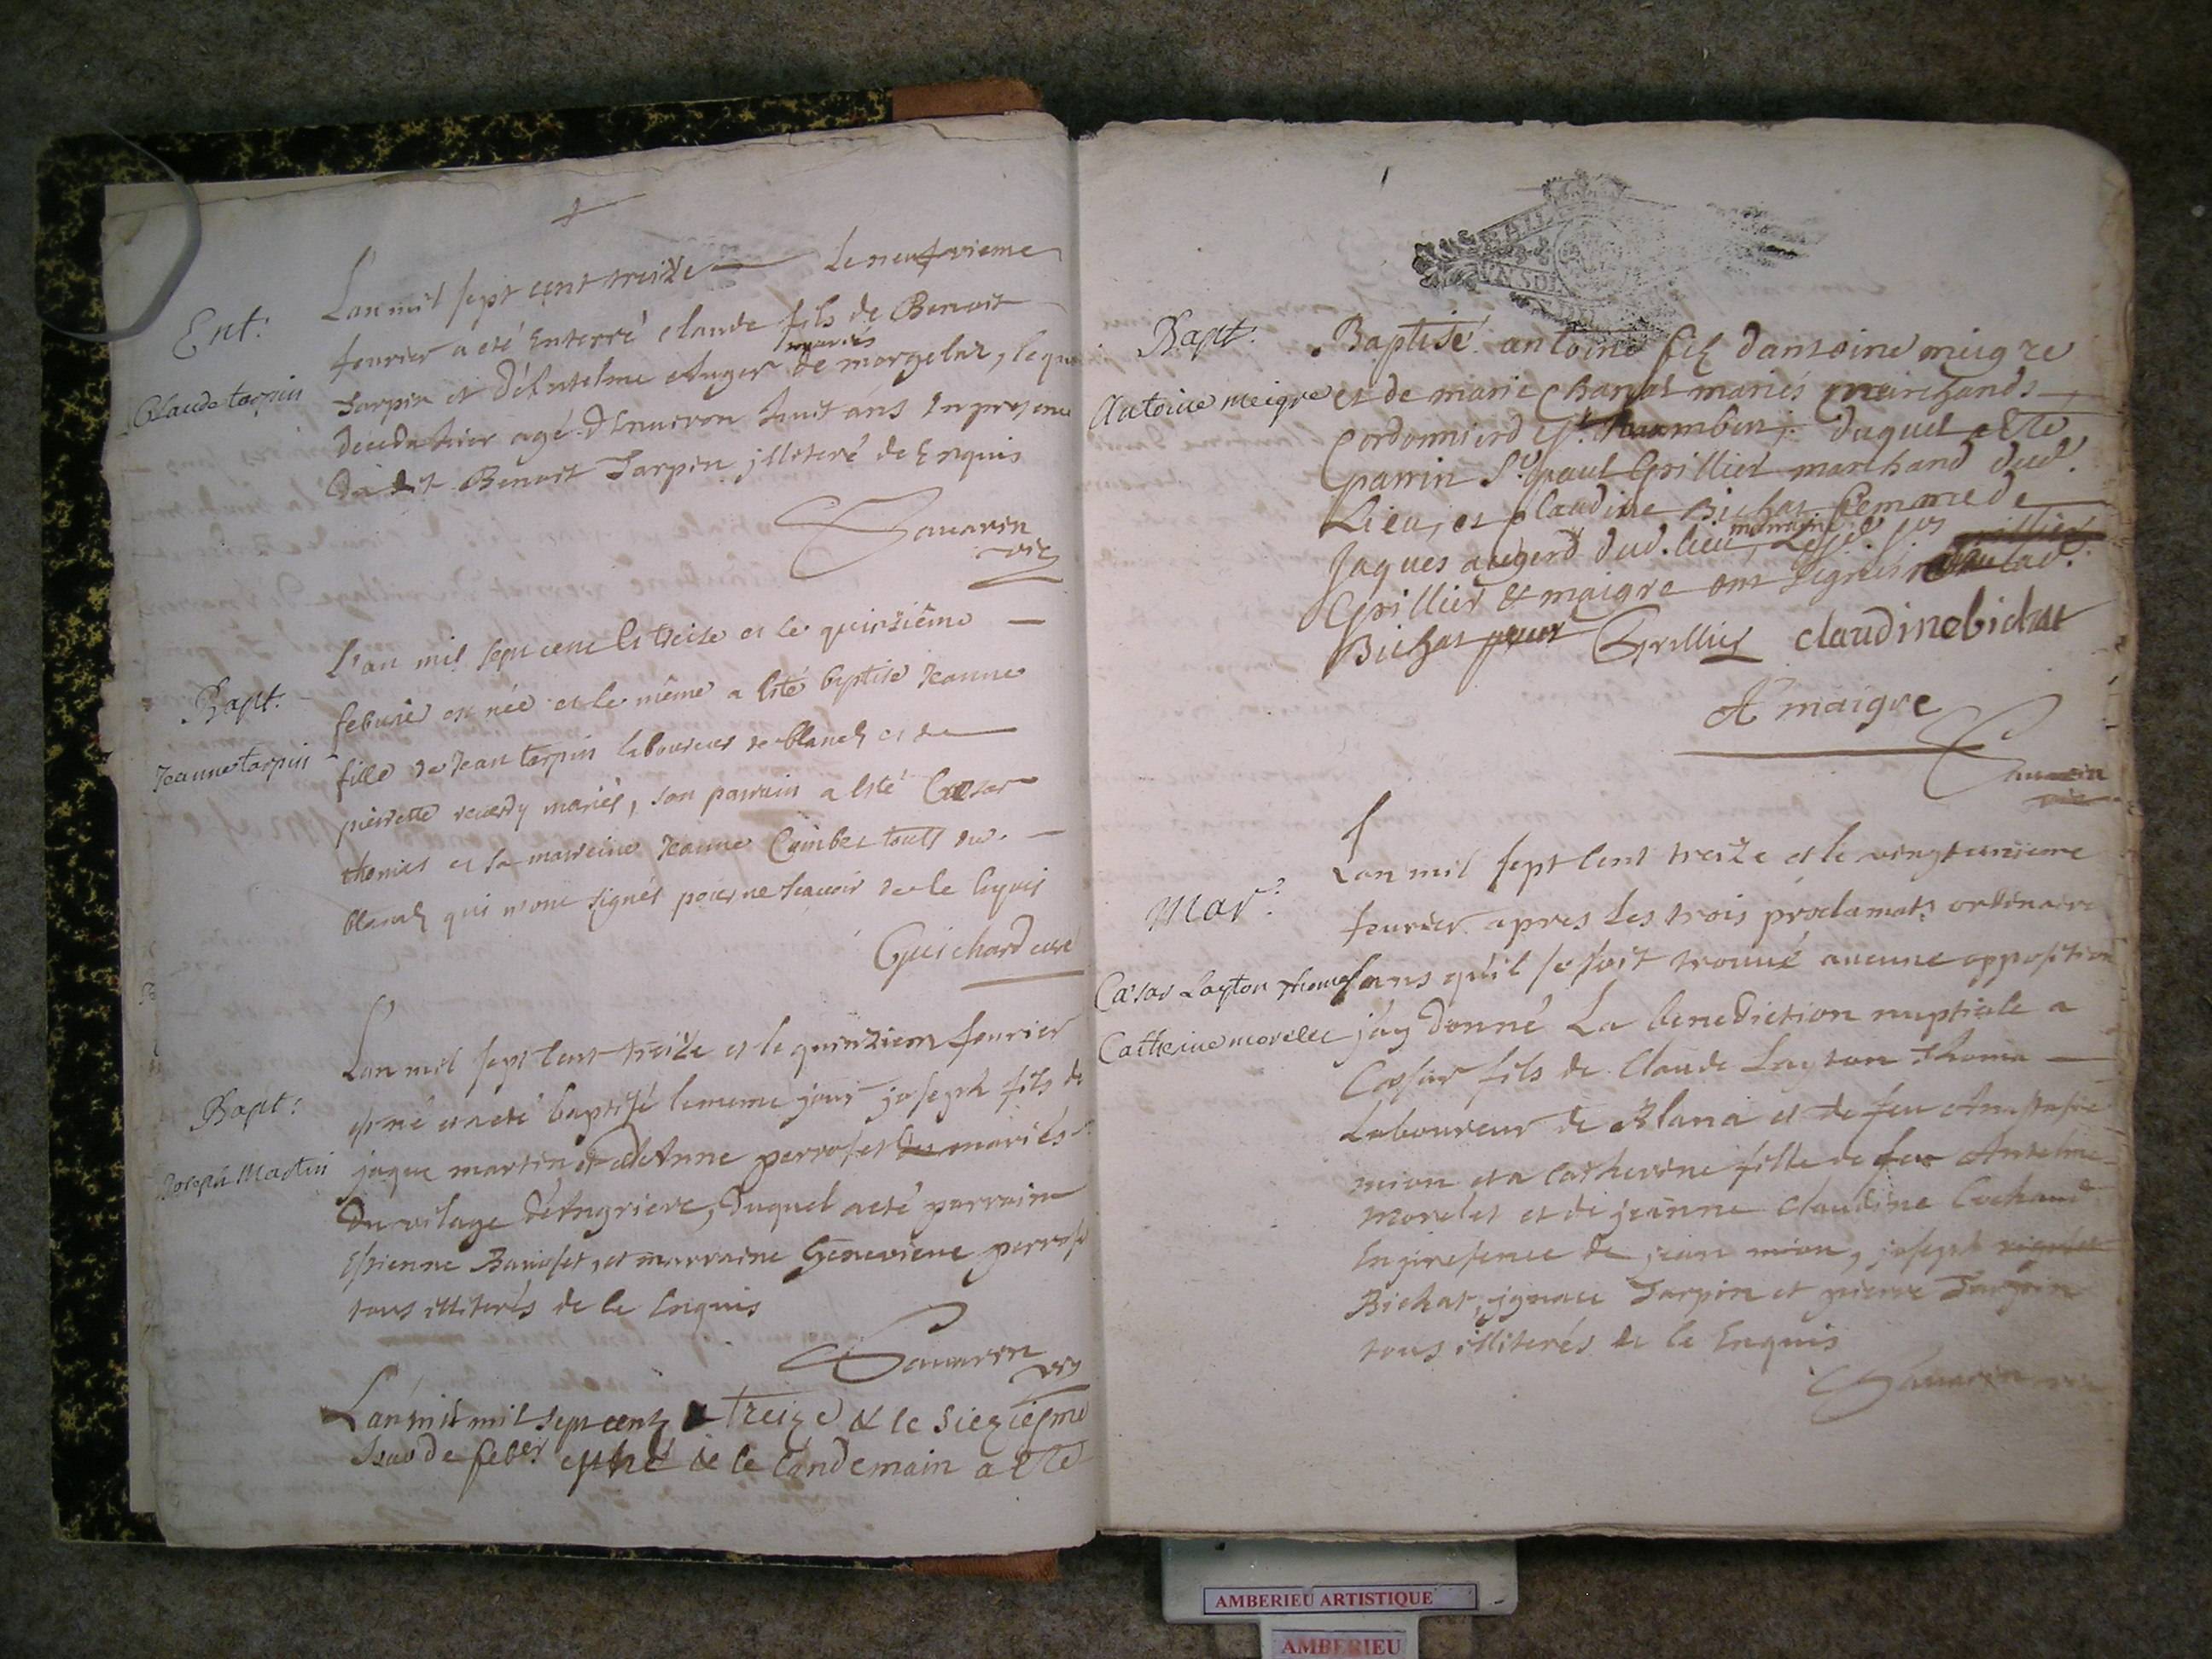 Ent:
Claude tarpin
L'an mil sept cent treize le neufvieme
feuvrier a eté Enterré claude fils de Benoit
mariés
Tarpin et d'Antelme Auger de morgelas, lequel
decedu hier agé d'Enuiron huit ans En presence
du dit Benoit Tarpin illiteré de Enquis
Sauarin
vic
Bapt.
Jeanne tarpin
L'an mil sept cent et treize et le quinzième
feburié est née et le même a esté baptisé Jeanne
fille de Jean tarpin laboureur de blanaz et de
pierrette mariés, son parrain a esté Cæsar
thomas et sa marreine Jeanne Combet touts du
blanaz qui n'ont signés pour ne scauoir de le Enquis
Guichard curé
Bapt:
Joseph Martin
L'an mil sept cent treize et le quinziem feurier
est né et a eté baptisé le meme jour joseph fils de
jaque martin et d'Anne perroset mariés
Du vilage d'Angriere, Duquel a eté parrain
Estienne Banoset, et marraine Genevieue perroset
tous illiterés de le Enquis
Sauarin
vic
L'an mil sept cent treize & le siezieme
de feber est né & le landemain a esté
Bapt:
Antoine meigre
Baptisé antoine fils d'antoine meigre
et de marie Charvat mariés marchands
Cordonniers duquel a esté
parrin Sr. paul Grillier marchand dud.
Lieu, et claudine Bichat femme de
marraine
Jaques augerd dud. lieu, Lesd. srs
Grillier & maigre ont signés lad.
Bichat Grillier claudine bichat
A maigre
Sauarin
vic
Mar:
Cæsar Layton thomas
Catherine morelet
L'an mil sept cent treize et le vingt unieme
feurier apres Les trois proclamats ordinaire
sans qu'il se soit trouué aucune opposition
j'ay Donné La benediction nuptiale a
Cæsar fils de Claude Layton Thoma
Laboureur de Blana et de feu Anastasie
mion et a Catherine fille de feu Antelme
Morelet et de jeanne Claudine Cochand
En presence de jean mion, joseph
Bichat, ignace Tarpin et pierre Tarpin
tous illiterés de le Enquis
Sauarin vic
AMBERIEU ARTISTIQUE
AMBERIEU